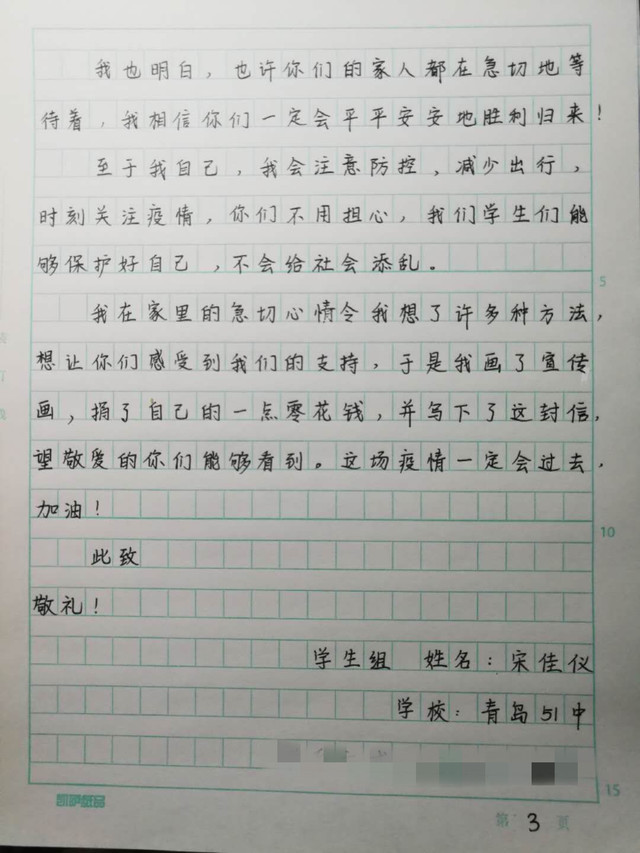 我也明白，也许你们的家人都在急切地等
待着，我相信你们一定会平平安安地胜利归来！
至于我自己，我会注意防控，减少出行，
时刻关注疫情，你们不用担心，我们学生们能
够保护好自己，不会给社会添乱。
5
我在家里的急切心情令我想了许多种方法，
想让你们感受到我们的支持，于是我画了宣传
画，捐了自己的一点零花钱，并写下了这封信，
望敬爱的你们能够看到。这场疫情一定会过去，
加油！
10
此致
敬礼！
学生组 姓名：宋佳仪
学校：青岛51中
15
凯萨纸品
第 3 页